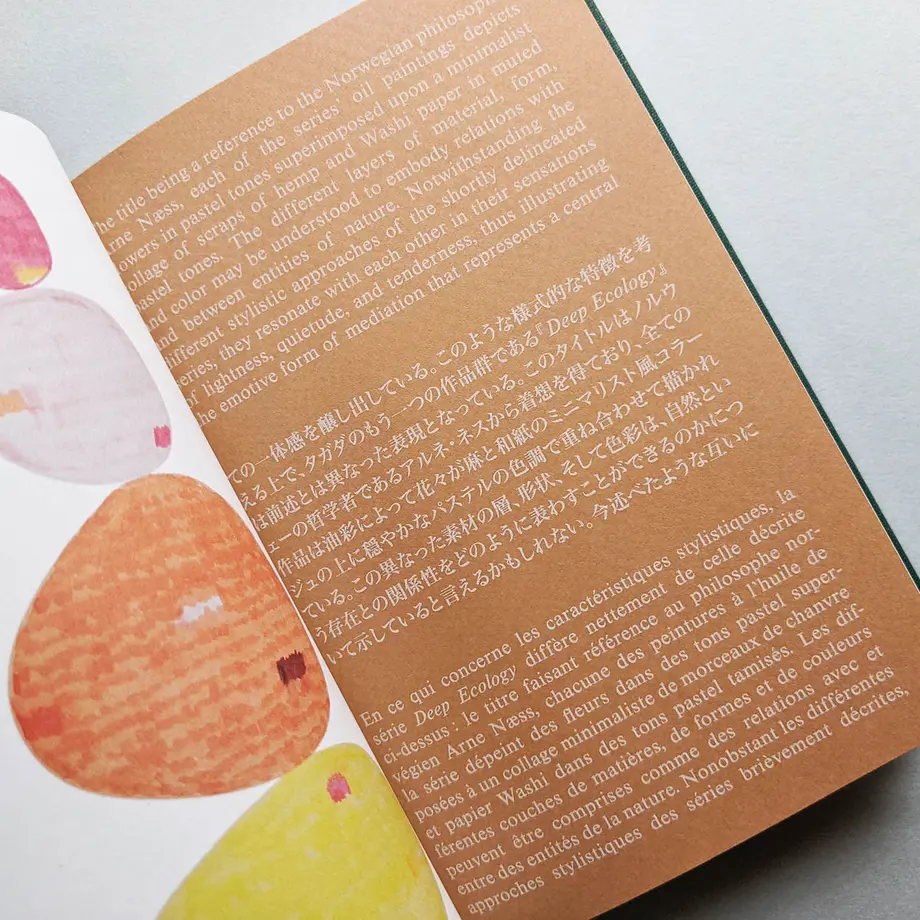 he title being a reference to the Norwegian philosoph
rne Næss, each of the series' oil paintings depicts
owers in pastel tones superimposed upon a minimalist
ollage of scraps of hemp and Washi paper in muted
astel tones. The different layers of material, form,
nd color may be understood to embody relations with
nd between entities of nature. Notwithstanding the
ifferent stylistic approaches of the shortly delineated
eries, they resonate with each other in their sensations
of lightness, quietude, and tenderness, thus illustrating
he emotive form of mediation that represents a central
ての一体感を醸し出している。このような様式的な特徴を考
える上で、タガダのもう一つの作品群である『Deep Ecology』
は前述とは異なった表現となっている。このタイトルはノルウ
ェーの哲学者であるアルネ・ネスから着想を得ており、全ての
作品は油彩によって花々が麻と和紙のミニマリスト風コラー
ジュの上に穏やかなパステルの色調で重ね合わせて描かれ
ている。この異なった素材の層、形状、そして色彩は、自然とい
う存在との関係性をどのように表わすことができるのかにつ
いて示していると言えるかもしれない。今述べたような互いに
En ce qui concerne les caractéristiques stylistiques, la
série Deep Ecology diffère nettement de celle décrite
ci-dessus : le titre faisant référence au philosophe nor-
végien Arne Næss, chacune des peintures à l'huile de
la série dépeint des fleurs dans des tons pastel super-
posées à un collage minimaliste de morceaux de chanvre
et papier Washi dans des tons pastel tamisés. Les dif-
férentes couches de matières, de formes et de couleurs
peuvent être comprises comme des relations avec et
entre des entités de la nature. Nonobstant les différentes
approches stylistiques des séries brièvement décrites,